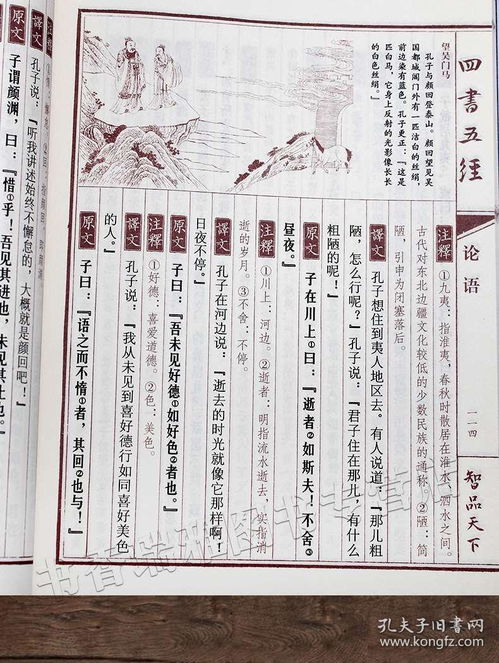 四書五经
论语
一一四
智品天下
望吴门马
孔子与颜回登泰山。颜回望见吴
国都城阊门外有一匹洁白的丝绢，
前边染有蓝色。孔子更正：“这是
匹白马，它身上反射的光影像长长
的白色丝绢。
注釋 ①九夷：指淮夷，春秋时散居在淮水、泗水之间。
古代对东北边疆文化较低的少数民族的通称。②陋：简
陋，引申为闭塞落后。
譯文 孔子想住到夷人地区去。有人说道：“那儿粗
陋，怎么行呢？”孔子说：“君子住在那儿，有什么
粗陋的呢！”
原文 子在川上①曰：“逝者②如斯夫！不舍③
昼夜。”
注釋 ①川上：河边。②逝者：明指流水逝去，实指消
逝的岁月。③不舍：不停。
譯文 孔子在河边说：“逝去的时光就像它那样啊！
日夜不停。”
原文 子曰：“吾未见好德①如好色②者也。”
注釋 ①好德：喜爱道德。②色：美色。
譯文 孔子说：“我从未见到喜好德行如同喜好美色
的人。”
原文 子曰：“语之而不惰①者，其回②也与！”
注釋
譯文 孔子说：“听我讲述始终不懈怠的，大概就是颜回吧！”
原文 子谓颜渊，曰：“惜①乎！吾见其进也，未见其止也。”
孔夫子旧书网
www.kongfz.com